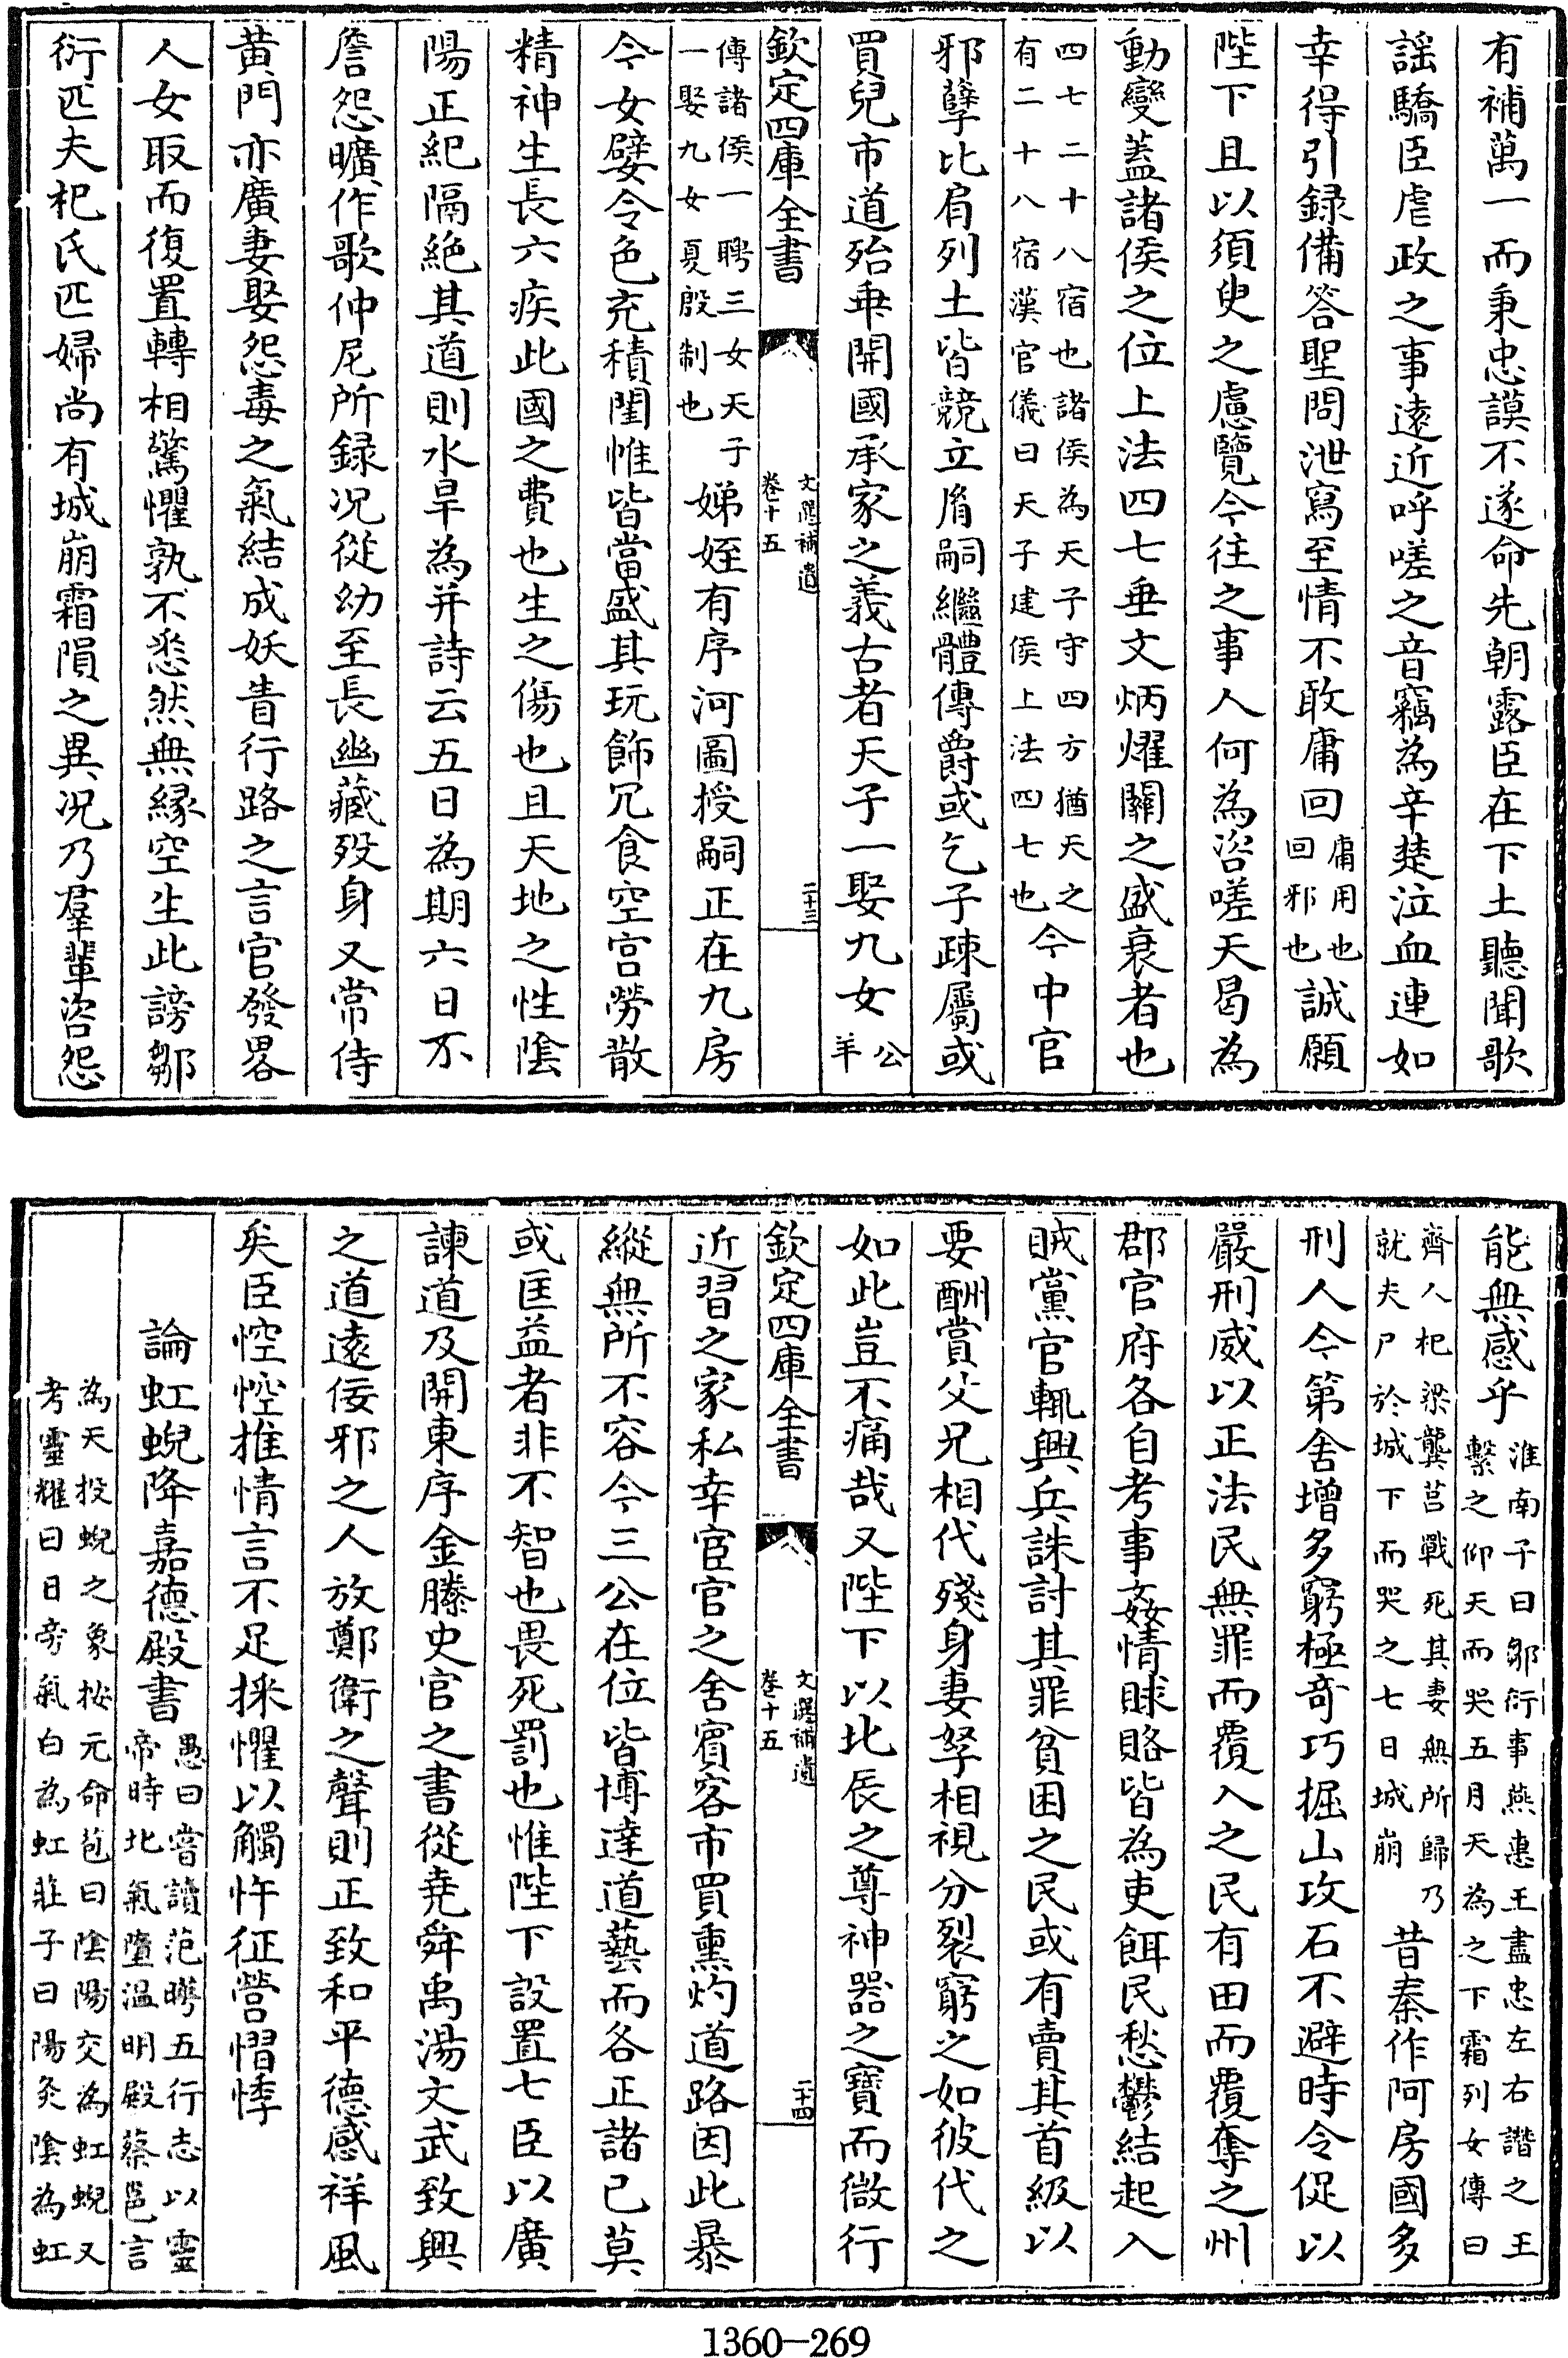 有補萬一而秉忠謨不遂命先朝露臣在下土聽聞歌
謡驕臣虐政之事遠近呼嗟之音竊為辛楚泣血連如
幸得引録備答聖問泄寫至情不敢庸回庸用也回邪也誠願
陛下且以須臾之慮覽今往之事人何為咨嗟天曷為
動變蓋諸侯之位上法四七垂文炳燿關之盛衰者也
四七二十八宿也諸侯為天子守四方猶天之有二十八宿漢官儀曰天子建侯上法四七也今中官
邪孽比肩列土皆競立胤嗣繼體傳爵或乞子疎屬或
買兒市道殆乖開國承家之義古者天子一娶九女公羊
欽定四庫全書
文選補遺
卷十五
二十三
傳諸侯一聘三女天子一娶九女夏殷制也娣姪有序河圖授嗣正在九房
今女嬖令色充積閨帷皆當盛其玩飾冗食空宫勞散
精神生長六疾此國之費也生之傷也且天地之性陰
陽正紀隔絶其道則水旱為并詩云五日為期六日不
詹怨曠作歌仲尼所録况從幼至長幽藏歿身又常侍
黄門亦廣妻娶怨毒之氣結成妖眚行路之言官發畧
人女取而復置轉相驚懼孰不悉然無縁空生此謗鄒
衍匹夫杞氏匹婦尚有城崩霜隕之異况乃羣輩咨怨
能無感乎淮南子曰鄒衍事燕惠王盡忠左右譖之王繫之仰天而哭五月天為之下霜列女傳曰
齊人杞梁襲莒戰死其妻無所歸乃就夫尸於城下而哭之七日城崩昔秦作阿房國多
刑人今第舍增多窮極奇巧掘山攻石不避時令促以
嚴刑威以正法民無罪而覆入之民有田而覆奪之州
郡官府各自考事姦情賕賂皆為吏餌民愁鬱結起入
賊黨官輒興兵誅討其罪貧困之民或有賣其首級以
要酬賞父兄相代殘身妻孥相視分裂窮之如彼代之
如此豈不痛哉又陛下以北辰之尊神器之寶而微行
欽定四庫全書
文選補遺
卷十五
二十四
近習之家私幸宦官之舍賓客市買熏灼道路因此暴
縱無所不容今三公在位皆博達道藝而各正諸己莫
或匡益者非不智也畏死罰也惟陛下設置七臣以廣
諫道及開東序金縢史官之書從堯舜禹湯文武致興
之道遠佞邪之人放鄭衛之聲則正致和平德感祥風
矣臣悾悾推情言不足採懼以觸忤征營慴悸
論虹蜺降嘉德殿書愚曰嘗讀范曄五行志以靈帝時北氣墮温明殿蔡邕言
為天投蜺之象按元命苞曰陰陽交為虹蜺又考靈耀曰日旁氣白為虹莊子曰陽灸陰為虹
1360—269